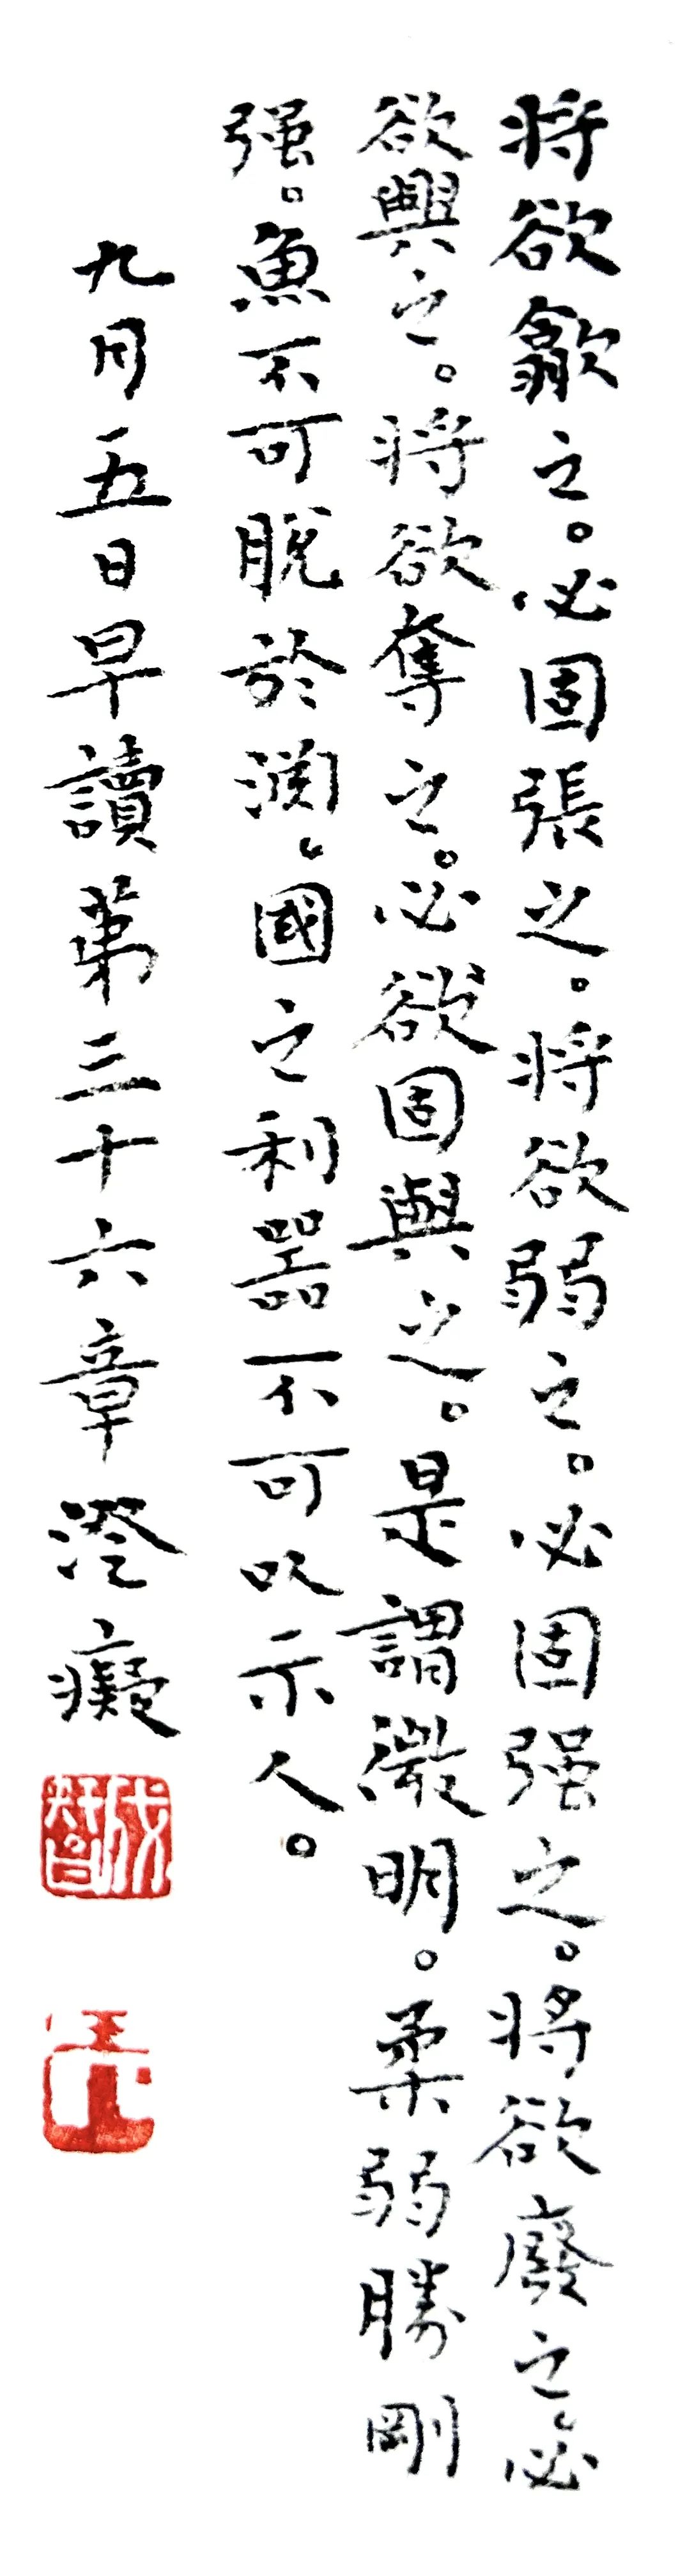 将欲歙之。必固張之。将欲弱之。必固强之。将欲廢之。必
欲興之。将欲奪之。必欲固與之。是謂微明。柔弱勝剛
强。魚不可脱於淵。國之利器不可以示人。
九月五日早讀第三十六章澄癡